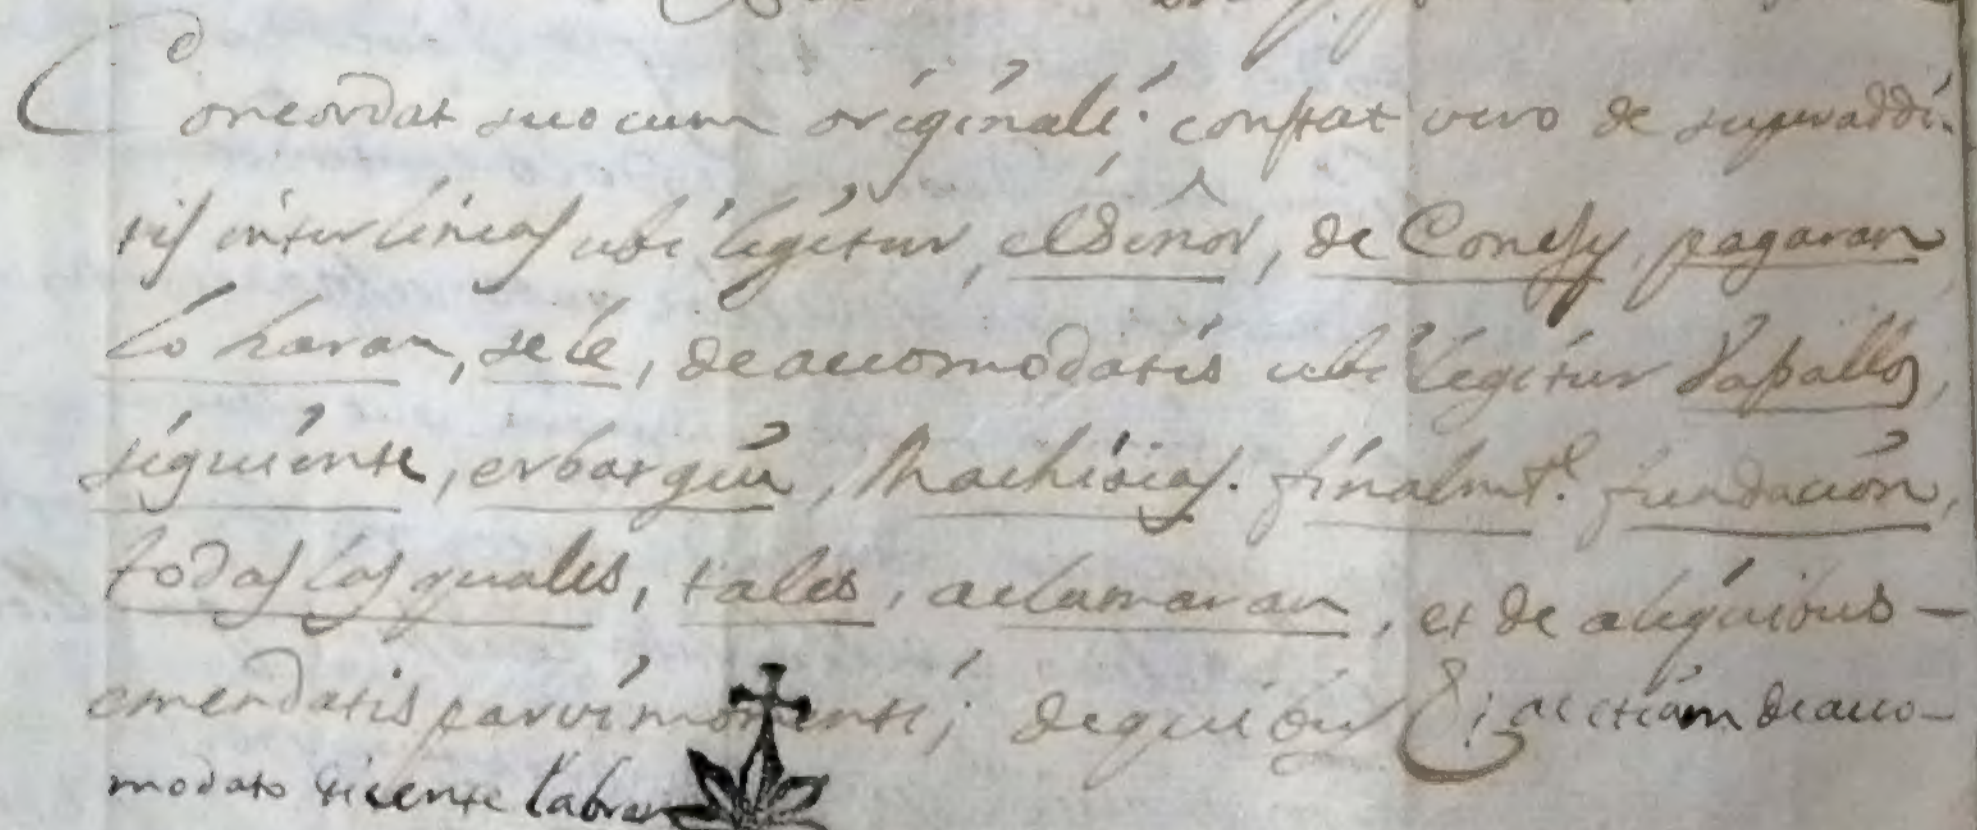 Concordat suo cum originali: constat vero de superaddi-
tis interlineas ubi legitur, el Señor, de Conesy, pagaran
lo haran, se le, de accomodatis ubi legitur Vasallos,
siguiente, erbargiu, Machisias. finalmte. fundacion,
todas las quales, tales, aclamaran, et de aliquibus -
emendatis parvi momenti; de quibus Ei; ac etiam de acco-
modato dicente